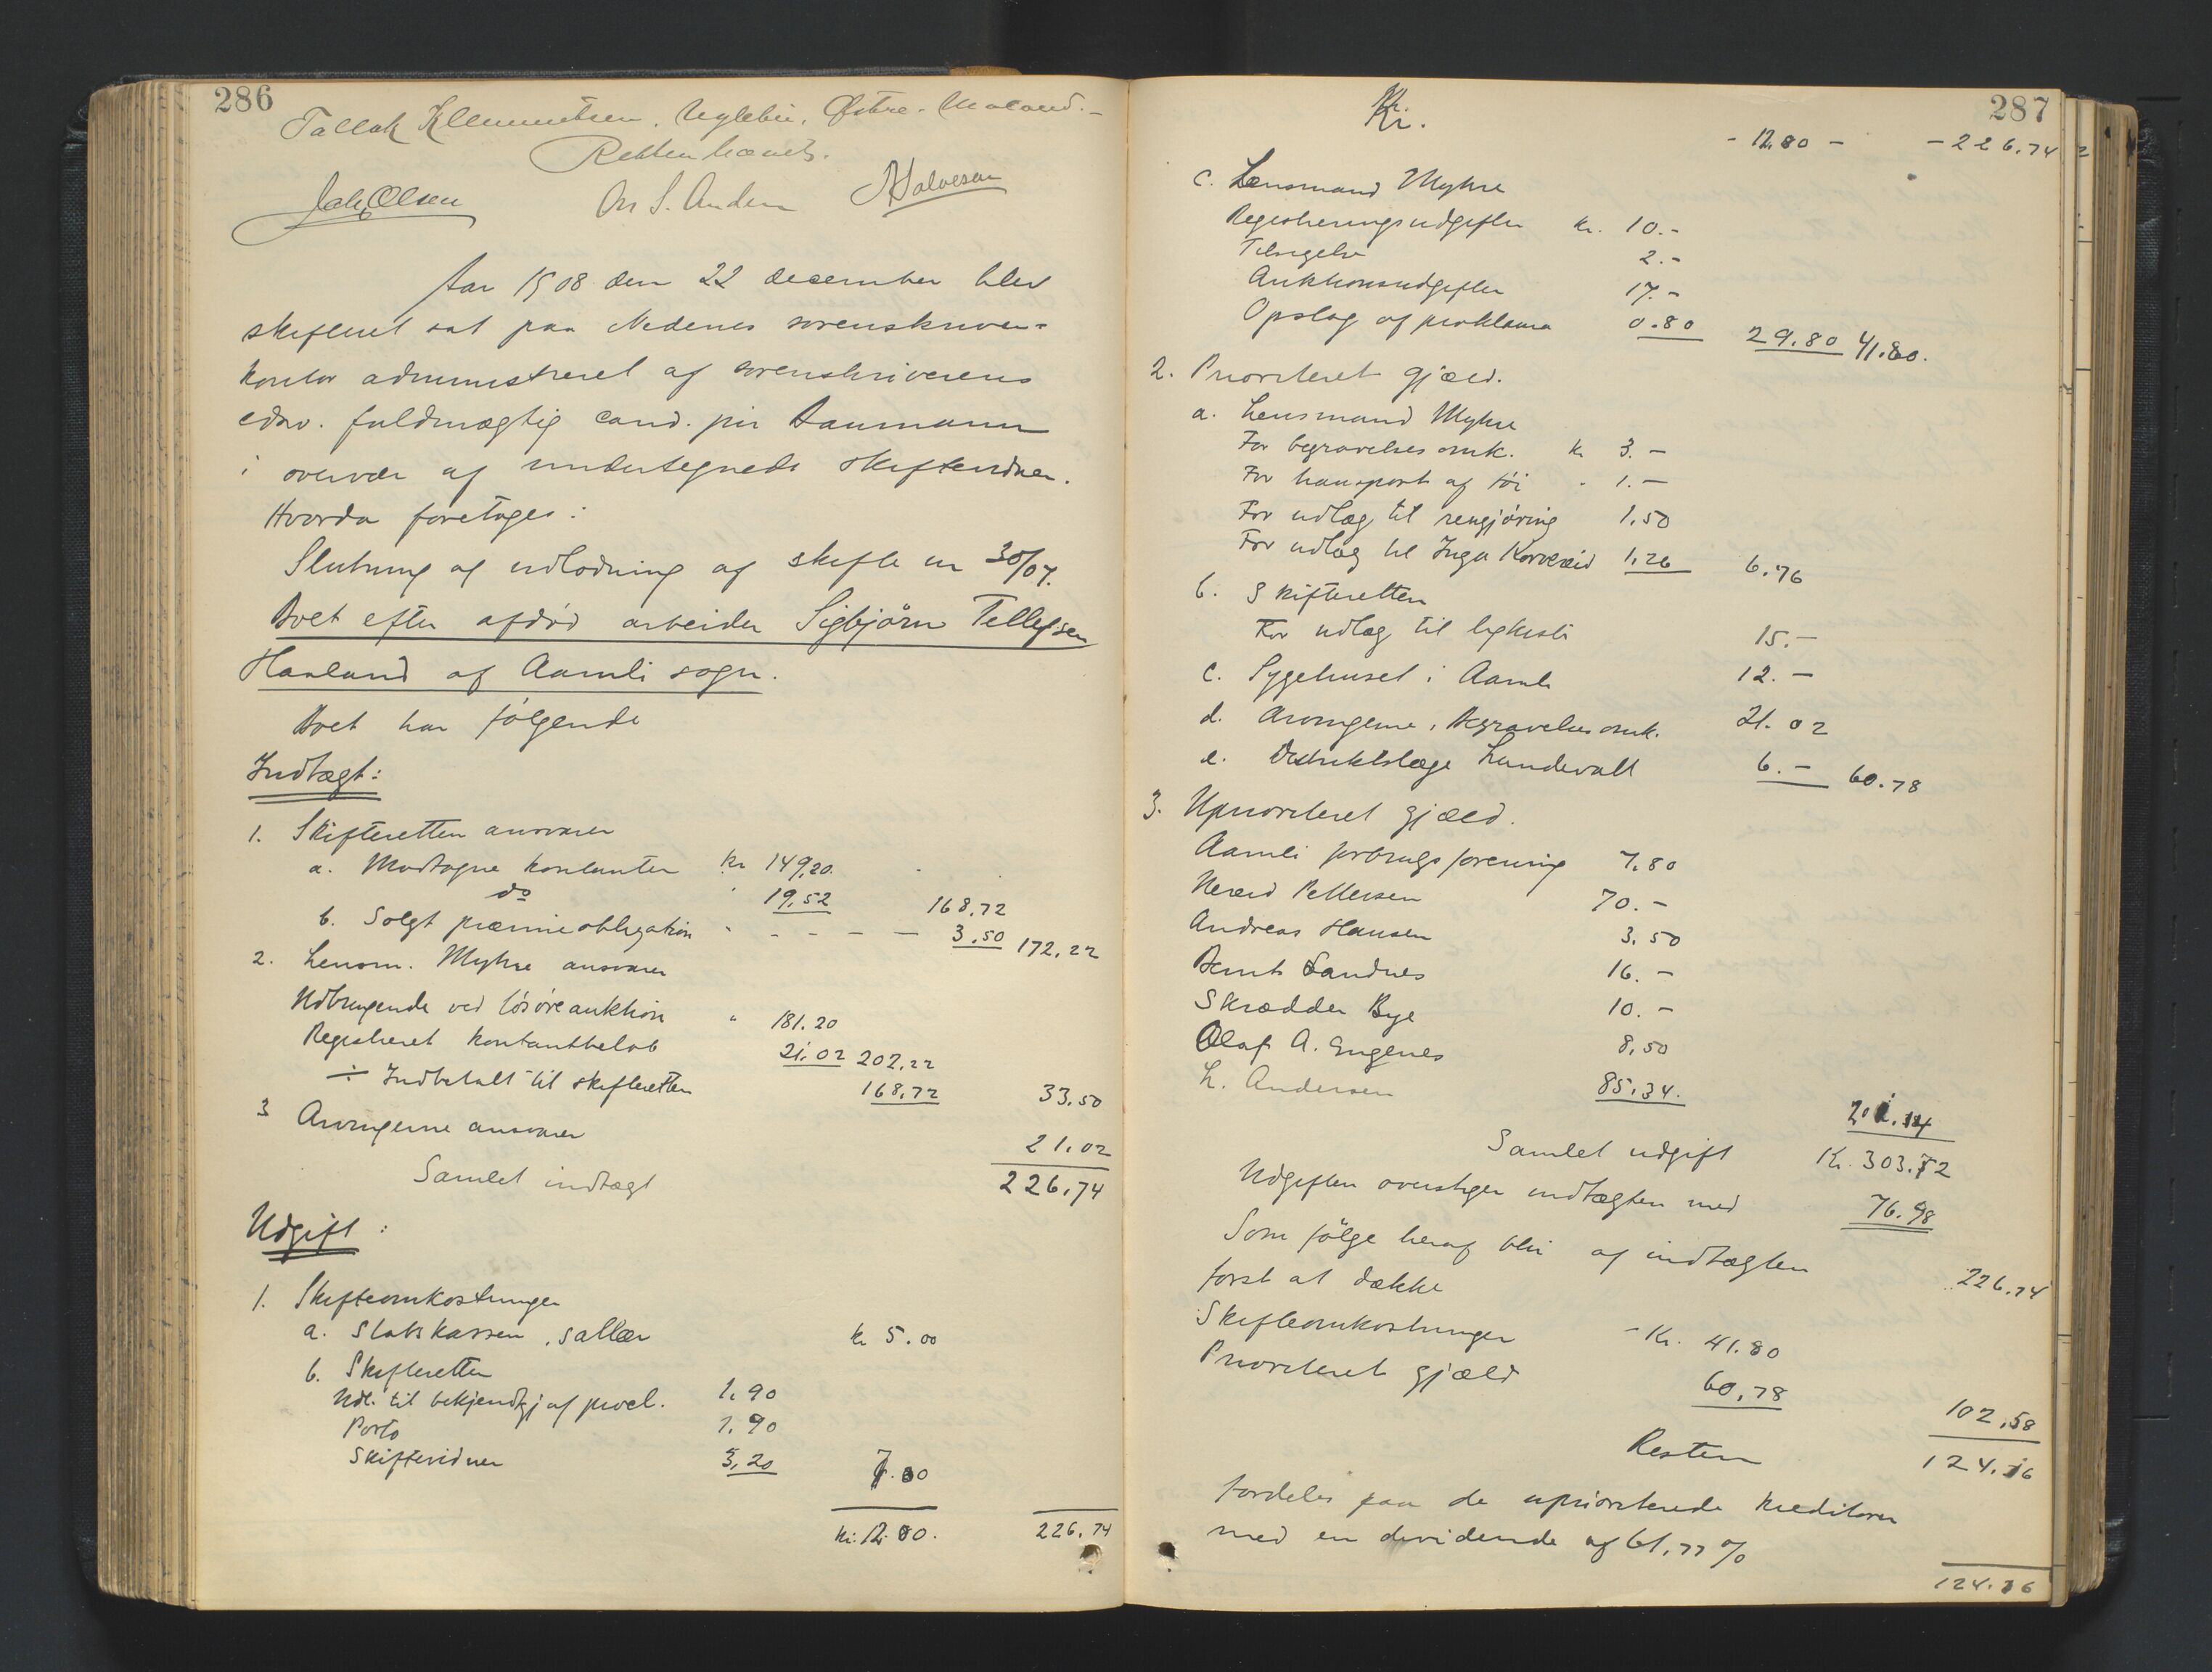 286
Tallak Klemmetsen, Uglebu, Østre-Moland.-
Retten hævet.
Jak. Olsen Ole S. Anders Halvorsen
Aar 1908 den 22 december blev
skifteret sat paa Nedenes sorenskriver-
kontor administreret af sorenskriverens
edsv. fuldmægtig cand. jur Baumann
i overvær af undertegnede skiftevidner.
Hvorda foretoges:
Slutning af udlodning af skifte nr 30/07.
Boet efter afdød arbeider Sigbjörn Tellefsen
Haaland af Aamli sogn.
Boet har følgende
Indtægt:
1. Skifteretten ansvarer
a. Modtagne kontanter Kr 149,20.
do " 19,52 168,72
b. Solgt præmieobligation " - - - - 3,50 172,22
2. Lensm. Myhre ansvarer
Udbringende ved lösöreauktion " 181.20
Registreret kontantbeløb 21,02 202,22
÷ Indbetalt til skifteretten 168,72 33,50
3 Arvingerne ansvarer 21,02
Samlet indtægt 226,74
Udgift:
1. Skifteomkostninger
a. Statskassen, sallær kr 5.00
b. Skifteretten
Udl. til bekjendtgj af procl. 1,90
Porto 1,90
Skiftevidner 3,20 7.00
kr. 12.00. 226,74
287
Kr.
- 12.00 - - 226,74
c. Lensmand Myhre
Registreringsudgifter kr. 10.-
Tilsigelse 2.-
Auktionsudgifter 17.-
Opslag af proklama 0.80 29.80 41.80.
2. Prioriteret gjæld.
a. Lensmand Myhre
For begravelsesomk. kr 3.-
For transport af töi " 1.-
For udlæg til rengjöring 1,50
For udlæg til Inga Korveræid 1,26 6,76
b. Skifteretten
For udlæg til ligkiste 15.-
c. Sygehuset i Aamli 12.-
d. Arvingerne, Begravelsesomk. 21.02
e. Distriktslæge Lundevall 6.- 60.78
3. Uprioriteret gjæld.
Aamli forbrugsforening 7,80
Neræid Pettersen 70.-
Andreas Hansen 3,50
Bernt Sandnes 16.-
Skrædder Bye 10.-
Olaf A. Engenes 8,50
L. Andersen 85,34. 201.14
Samlet udgift Kr. 303.72
Udgiften overstiger indtægten med 76.98
Som fölge heraf blir af indtægten 226,74
först at dække
Skifteomkostninger - Kr. 41.80
Prioriteret gjæld 60,78 102,58
Resten 124.16
fordeles paa de uprioriterede kreditorer
med en dividende af 61,77%
124.16